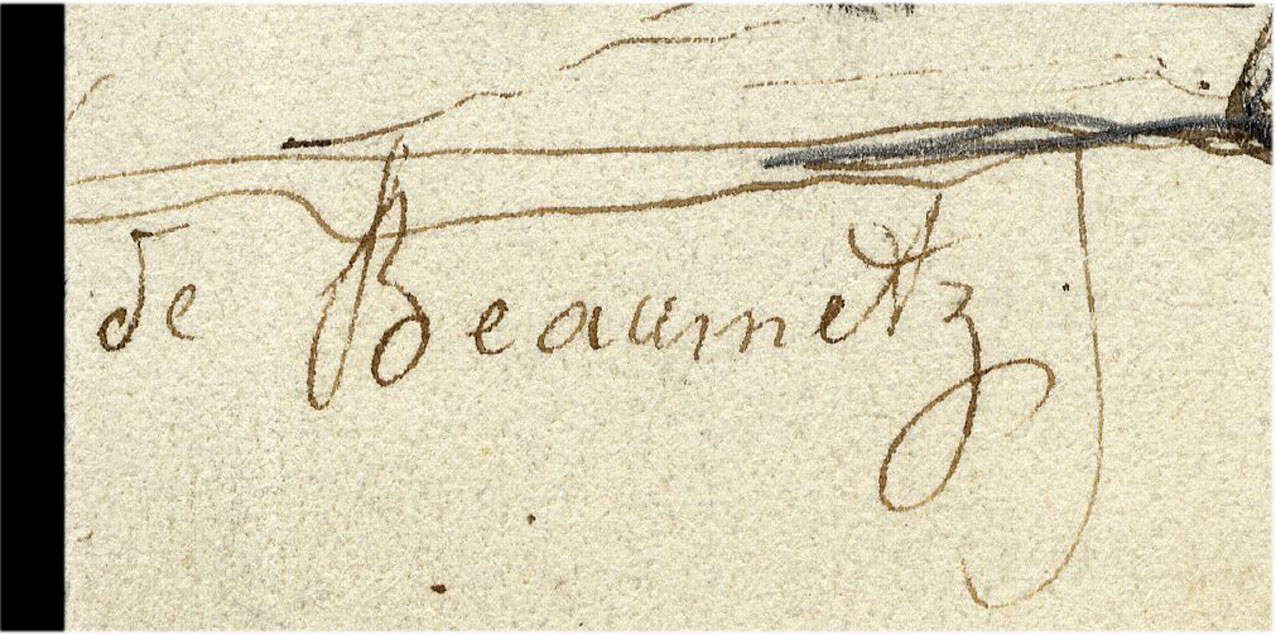 de Beaumetz